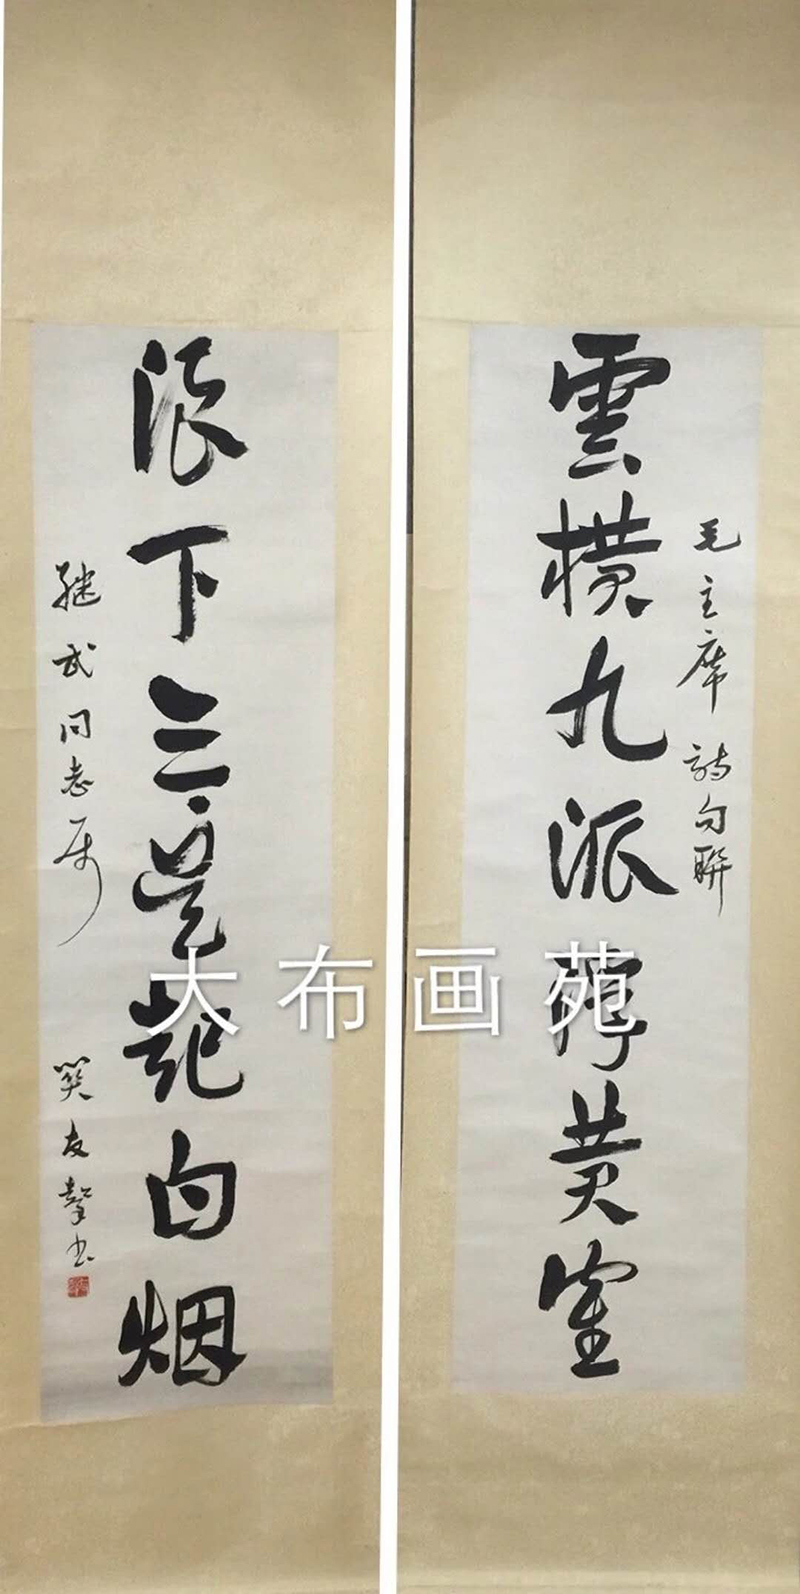 雲横九派浮黄寉
毛主席詩句聯
浪下三吴起白烟
继武同志属
関友聲书
大布画苑